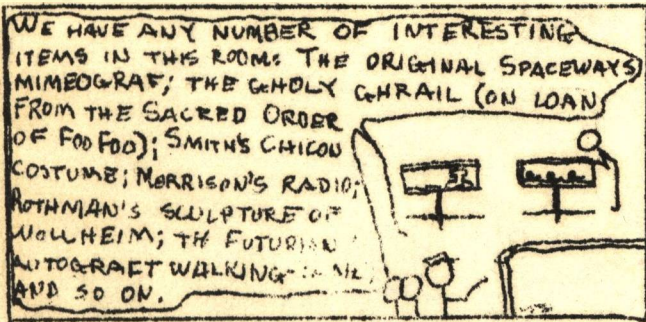 WE HAVE ANY NUMBER OF INTERESTING
ITEMS IN THIS ROOM: THE ORIGINAL SPACEWAYS
MIMEOGRAF; THE GHOLY GHRAIL (ON LOAN
FROM THE SACRED ORDER
OF FOO FOO); SMITH'S CHICON
COSTUME; MORRISON'S RADIO;
ROTHMAN'S SCULPTURE OF
WOLLHEIM; TH FUTURIAN
AUTOGRAFT WALKING
AND SO ON.